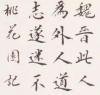 魏晉此人
為外人道
志遂迷不
桃花園記